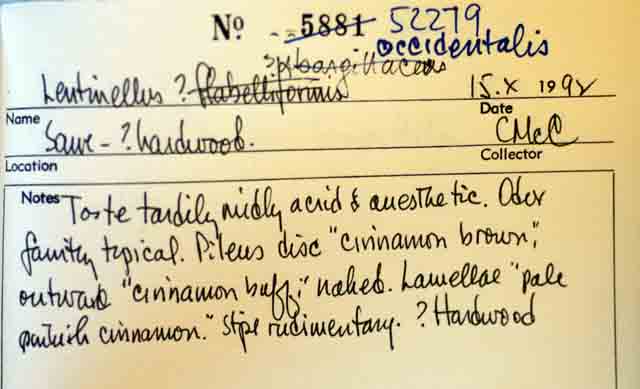 No 5881 52279
occidentalis
Lentinellus ? flabelliformis
15.X 1992
Name Date
Same - ? hardwood. CMcC
Location Collector
Notes Taste tardily mildly acrid & anesthetic. Odor
faintly typical. Pileus disc "cinnamon brown",
outward "cinnamon buff;" naked. Lamellae "pale
pinkish cinnamon." Stipe rudimentary. ? Hardwood